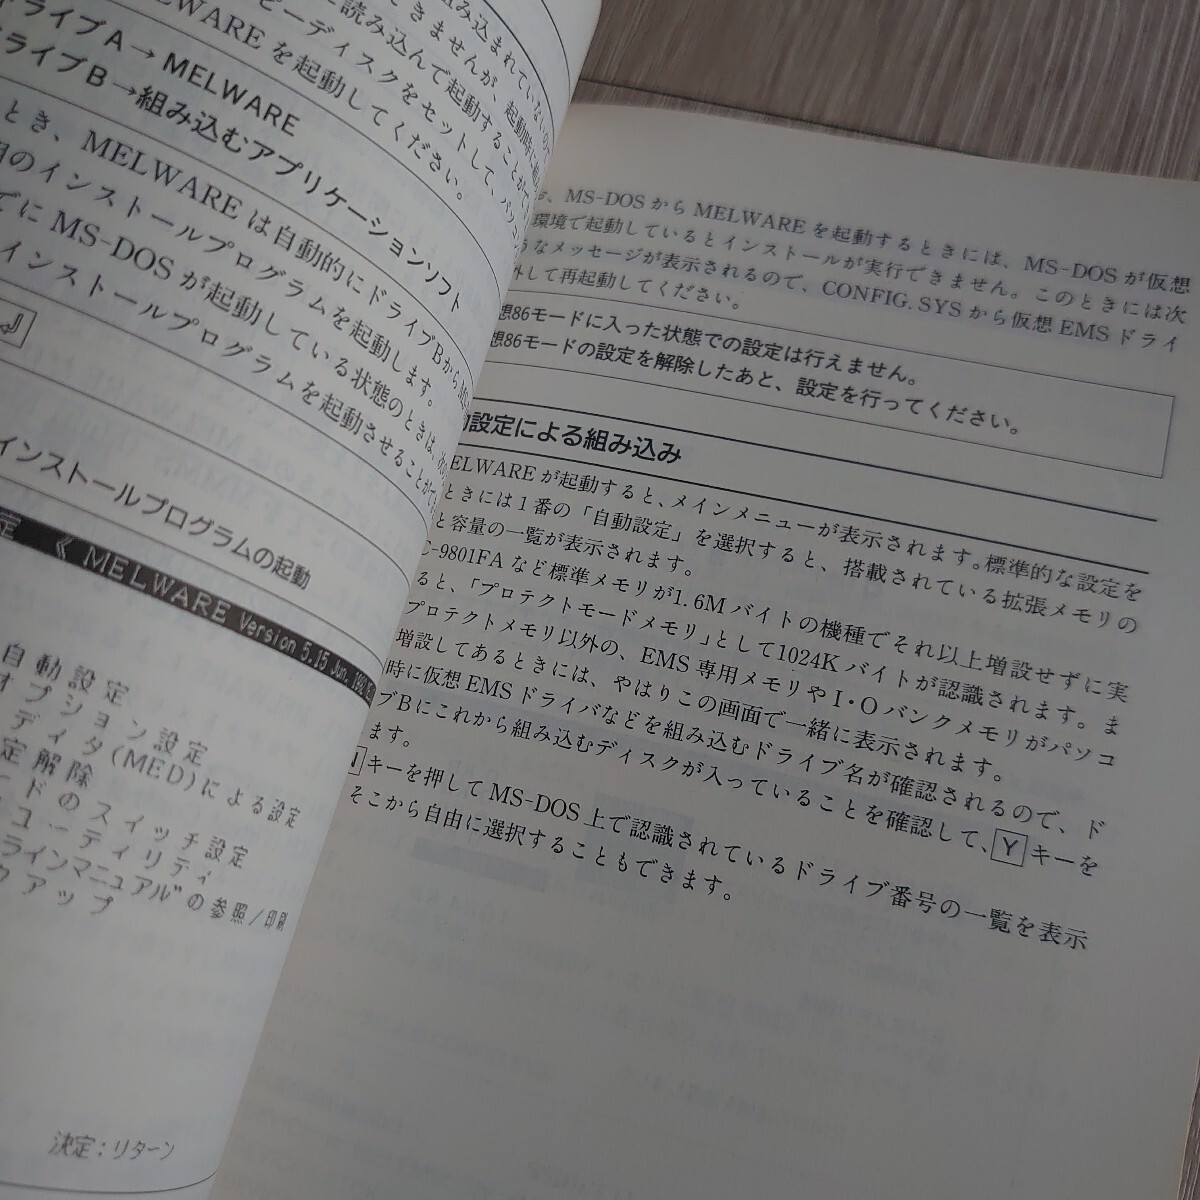 組み込まれていないの
できませんが、起動時に組み
に読み込んで起動することがで
ピーディスクをセットして、パソコン
WAREを起動してください。
ドライブA→MELWARE
ドライブB→組み込むアプリケーションソフト
とき、MELWAREは自動的にドライブBからMS
のインストールプログラムを起動します。
でにMS-DOSが起動している状態のときは、次の
インストールプログラムを起動させることができ
インストールプログラムの起動
定 《 MELWARE Version 5.15 Jun.
自動設定
オプション設定
ディタ(MED)による設定
定解除
ードのスイッチ設定
ユーティリティ
ラインマニュアル"の参照/印刷
クアップ
決定:リターン
お、MS-DOSからMELWAREを起動するときには、MS-DOSが仮想
環境で起動しているとインストールが実行できません。このときには次
うなメッセージが表示されるので、CONFIG.SYSから仮想EMSドライ
外して再起動してください。
想86モードに入った状態での設定は行えません。
想86モードの設定を解除したあと、設定を行ってください。
動設定による組み込み
ELWAREが起動すると、メインメニューが表示されます。標準的な設定を
ときには1番の「自動設定」を選択すると、搭載されている拡張メモリの
と容量の一覧が表示されます。
C-9801FAなど標準メモリが1.6Mバイトの機種でそれ以上増設せずに実
ると、「プロテクトモードメモリ」として1024Kバイトが認識されます。ま
プロテクトメモリ以外の、EMS専用メモリやI・Oバンクメモリがパソコ
増設してあるときには、やはりこの画面で一緒に表示されます。
時に仮想EMSドライバなどを組み込むドライブ名が確認されるので、ド
ブBにこれから組み込むディスクが入っていることを確認して、Yキーを
ます。
Nキーを押してMS-DOS上で認識されているドライブ番号の一覧を表示
そこから自由に選択することもできます。